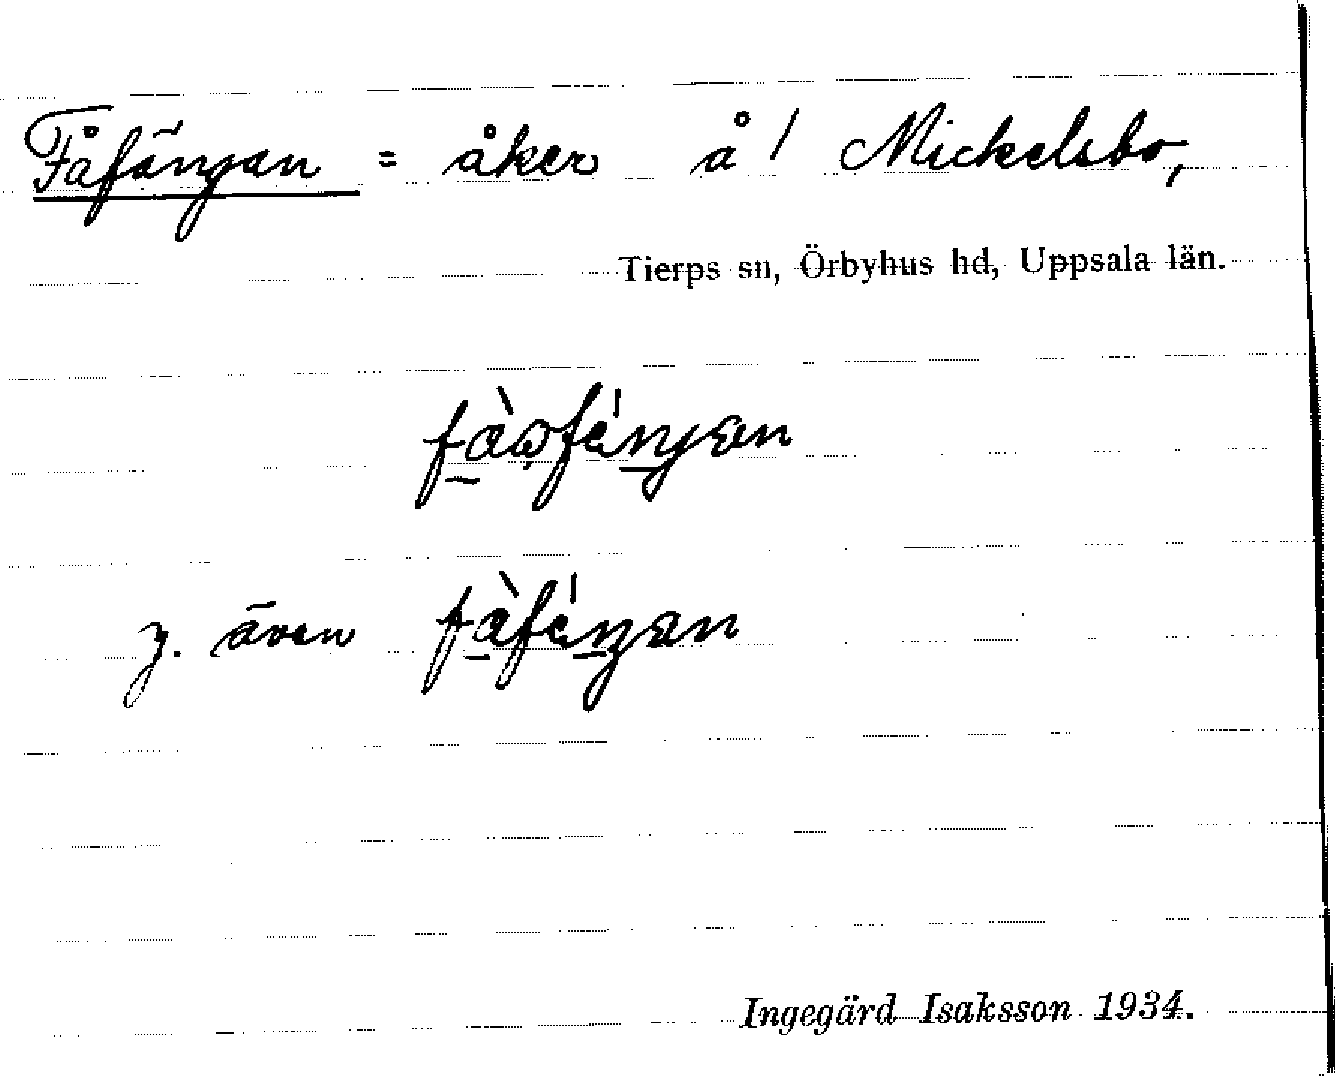 Fåfängan = åker å / Mickelsbo,
Tierps sn, Örbyhus hd, Uppsala län.
även
Ingegärd Isaksson 1934.